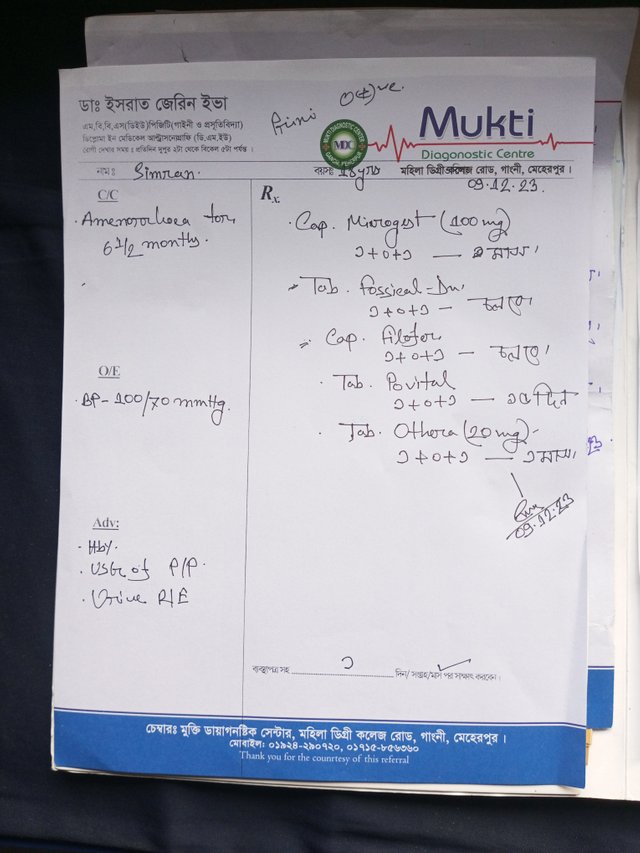 ডাঃ ইসরাত জেরিন ইভা
এম,বি,বি,এস(ডিইউ)পিজিটি(গাইনী ও প্রসূতিবিদ্যা)
ডিপ্লোমা ইন মেডিকেল আল্ট্রাসনোগ্রাফি (ডি,এম,ইউ)
রোগী দেখার সময় : প্রতিদিন দুপুর ২টা থেকে বিকেল ৫টা পর্যন্ত ।
O(+)ve.
MDC
Mukti
Diagonostic Centre
মহিলা ডিগ্রী কলেজ রোড, গাংনী, মেহেরপুর ।
নামঃ Simran. বয়সঃ 18 yrs 09.12.23
C/C
Amenorrhoea for
6 1/2 months.
O/E
BP - 100/70 mmHg.
Adv:
Hb%
USG of P/P
Urine R/E
Rx.
Cap. Microgest (100 mg)
১+০+১ — মাস।
Tab. Fossical-D
১+০+১ — চলবে।
Cap. Filofer
১+০+১ — চলবে।
Tab. Povital
১+০+১ — ১৫ দিন
Tab. Othera (20 mg)
১+০+১ — ১ মাস।
09.12.23
ব্যবস্থাপত্র সহ ১ দিন/ সপ্তাহ/মাস পর সাক্ষাৎ করবেন।
চেম্বারঃ মুক্তি ডায়াগনষ্টিক সেন্টার, মহিলা ডিগ্রী কলেজ রোড, গাংনী, মেহেরপুর ।
মোবাইল: ০১৯২৪-২৯০৭২০, ০১৭১৫-৮৫৬৩৬০
Thank you for the counrtesy of this referral